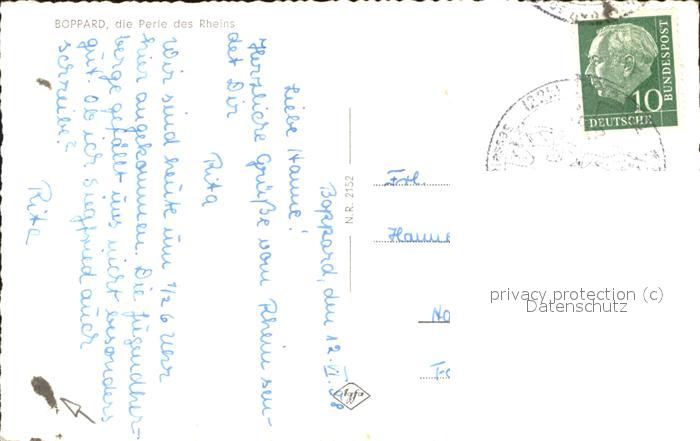 BOPPARD, die Perle des Rheins
Boppard, den 12. VI. 58
Liebe Hanne!
Herzliche Grüße vom Rhein sen-
det Dir
Rita
Wir sind heute um 1/2 6 Uhr
hier angekommen. Die Jugendher-
berge gefällt uns nicht besonders
gut. Ob ich Siegfried auch
schreibe?
Rita
N.R. 2152
Agfa
Frl.
Hanne
DEUTSCHE
BUNDESPOST
10
privacy protection (c)
Datenschutz